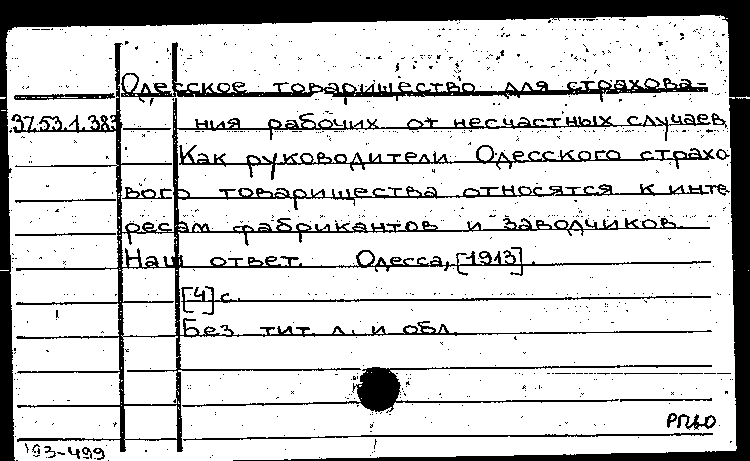 Одесское товарищество для страхова=
37.53.1.383 ния рабочих от несчастных случаев
Как руководители Одесского страхо
вого товарищества относятся к инте
ресам фабрикантов и заводчиков.
Наш ответ. Одесса, [1913].
[4] с.
Без тит. л. и обл.
193-499